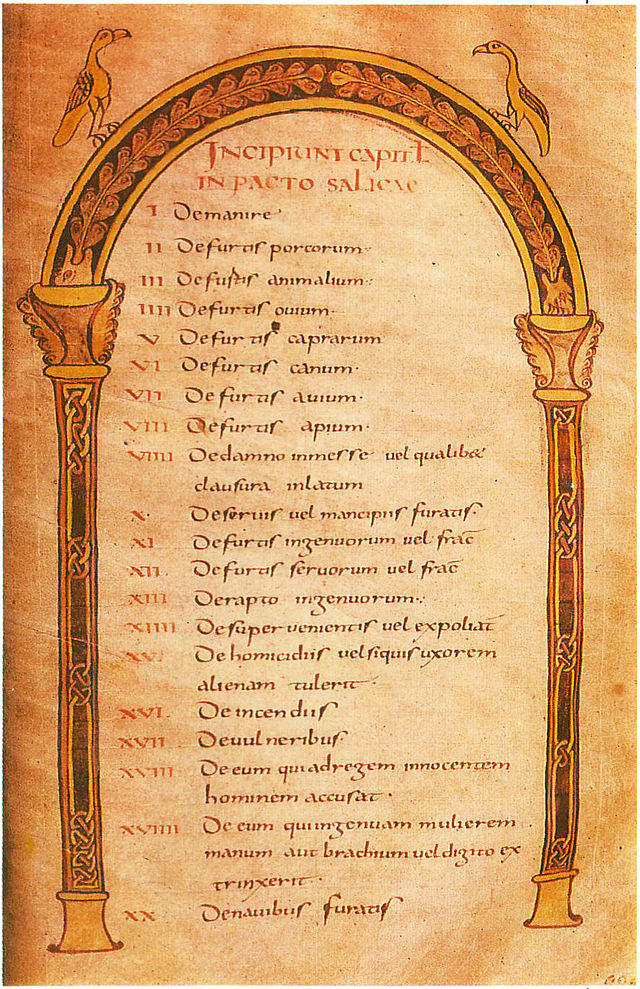 INCIPIUNT CAPITL
IN PACTO SALICAE
I De manire
II De furtis porcorum
III De furtis animalium
IIII De furtis ovium
V De furtis caprarum
VI De furtis canum
VII De furtis avium
VIII De furtis apium
VIIII De damno in messe vel qualib&
clausura inlatum
X De servis vel mancipiis furatis
XI De furtis ingenuorum vel frac̄
XII De furtis servorum vel frac̄
XIII De rapto ingenuorum
XIIII De superventientis vel expoliat̄
XV De homicidiis vel si quis uxorem
alienam tulerit
XVI De incendiis
XVII De vulneribus
XVIII De eum qui ad regem innocentem
hominem accusat
XVIIII De eum qui ingenuam mulierem
manum aut brachium vel digito ex
trinxerit
XX De navibus furatis